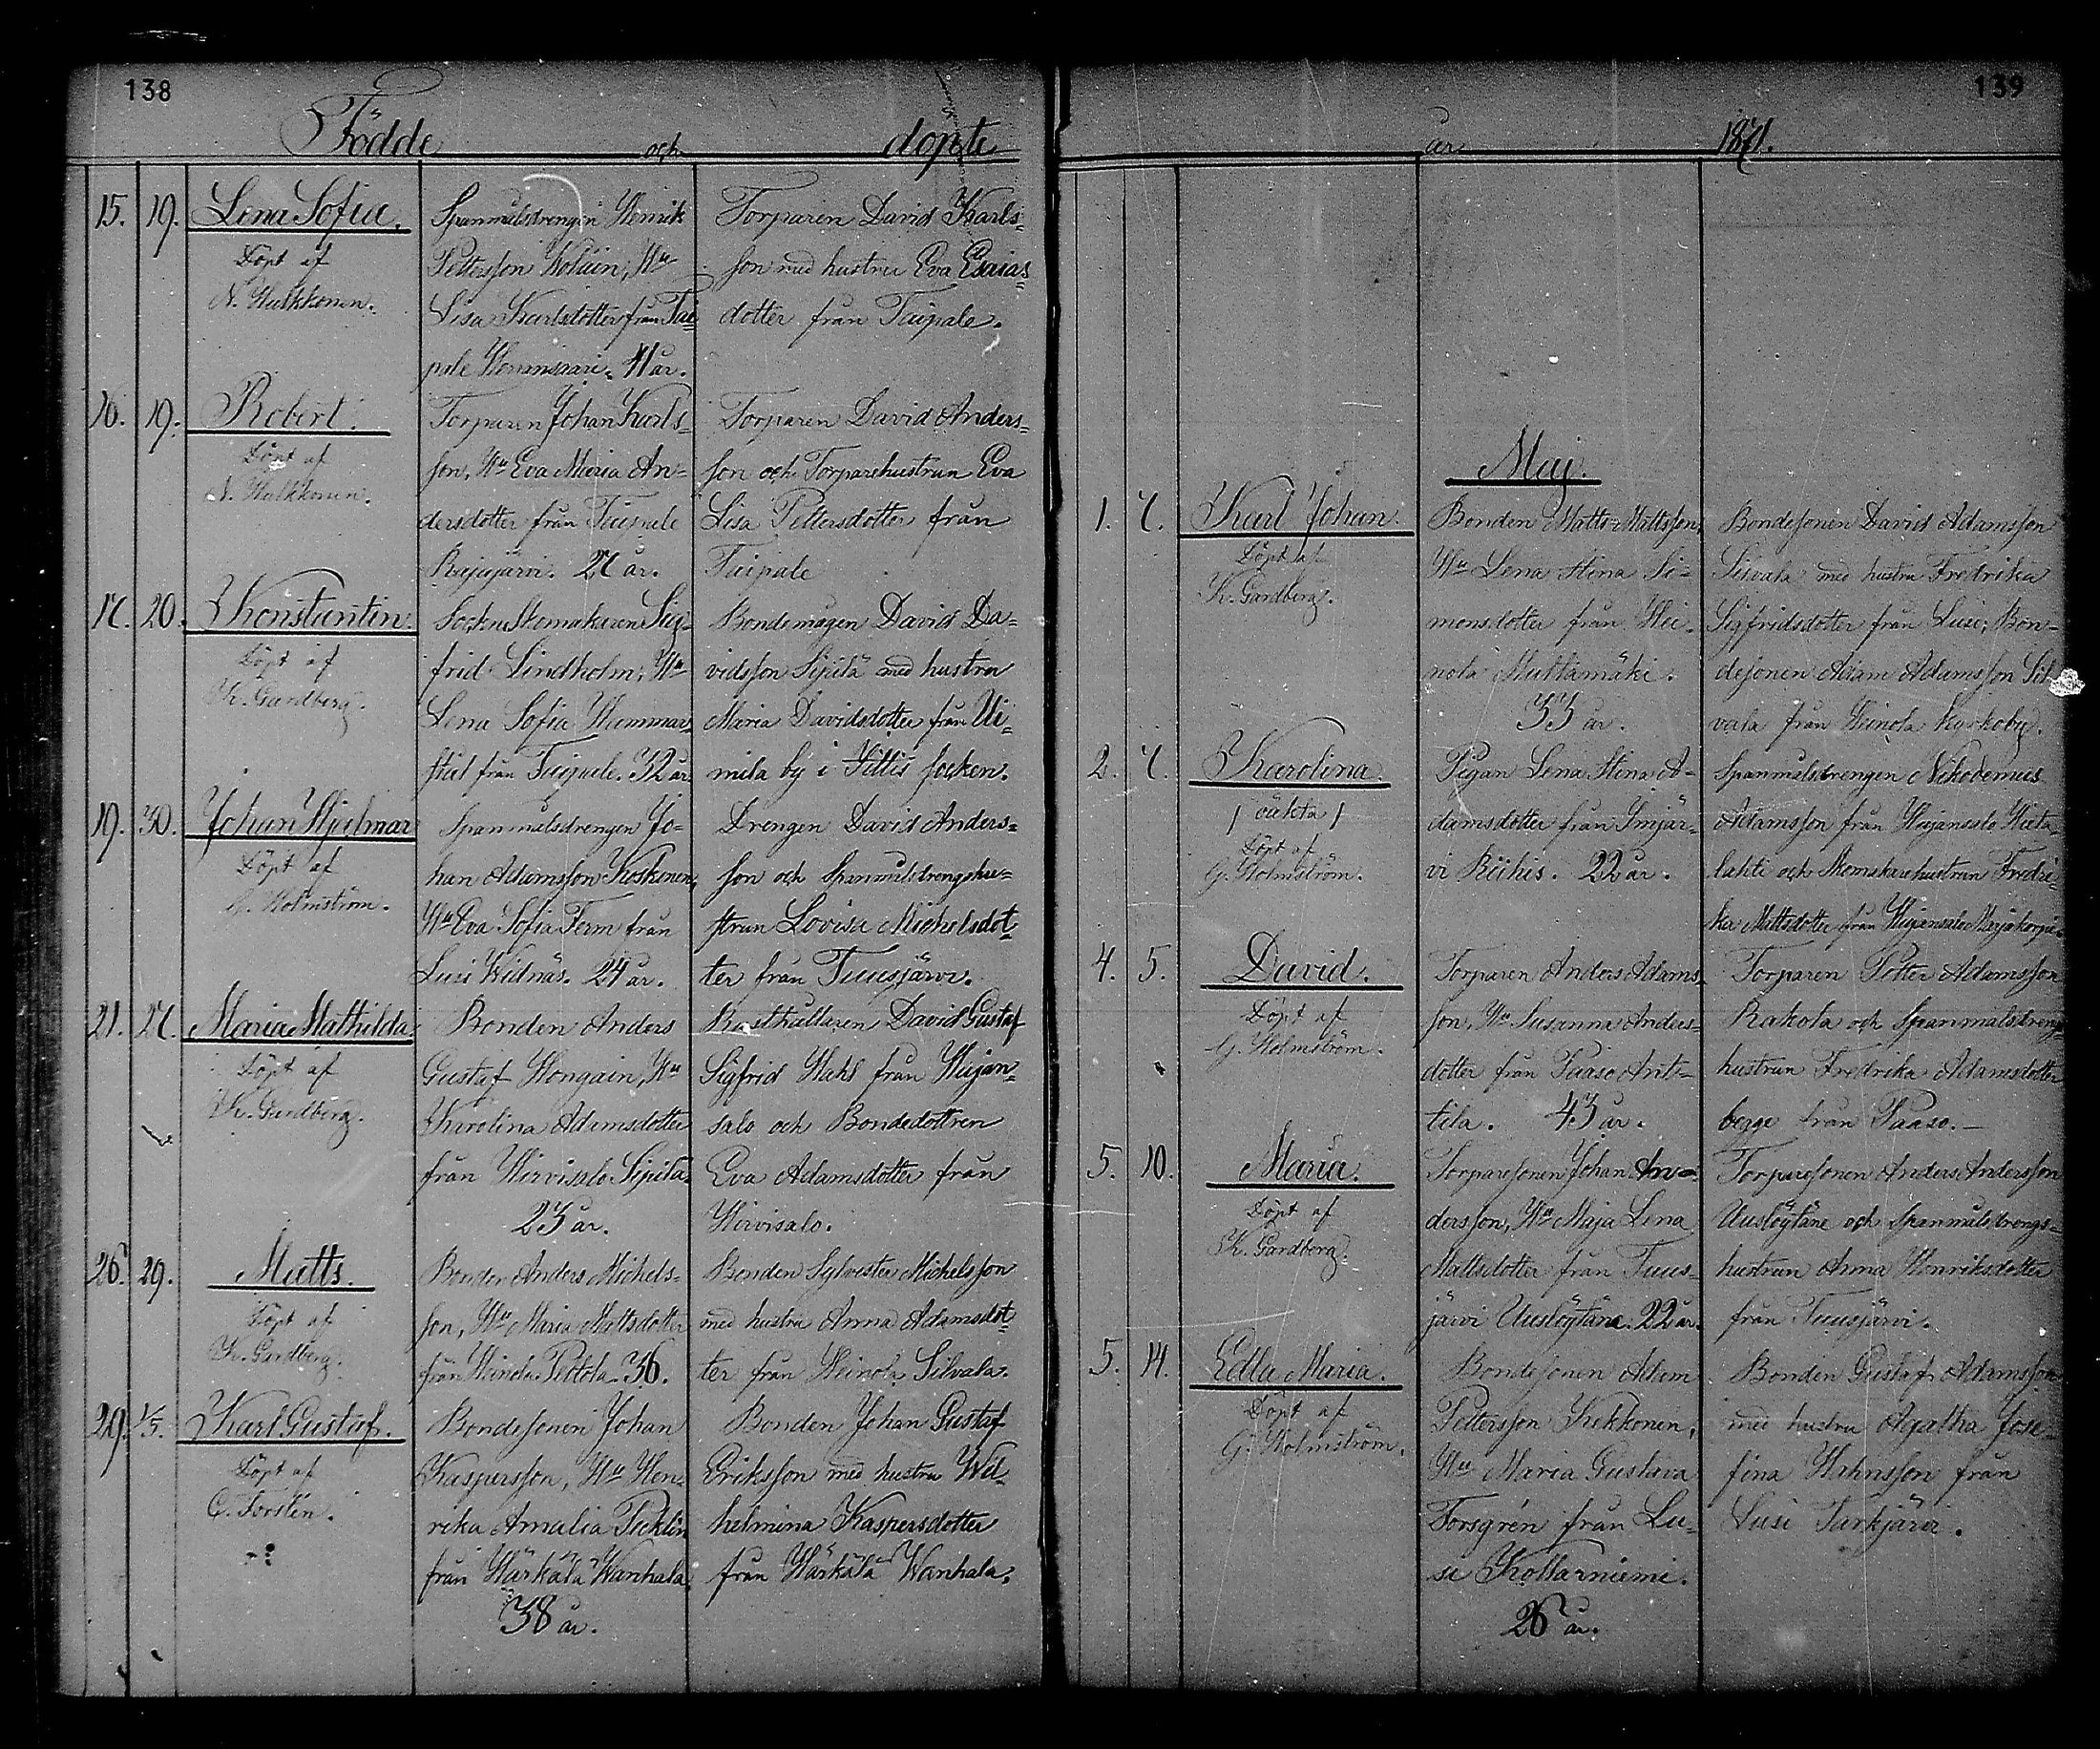 138
Födde och döpte
15. 19. Lena Sofia.
Döpt af
N. Hulkkonen.
Spanmålsdrengen Henrik
Pettersson Kolain, Hu
Lisa Karlsdotter från Tai=
pale Honansaari. 41 år.
Torparen David Karls=
son med hustru Eva Esaias=
dotter från Taipale.
16. 19. Robert.
Döpt af
N. Hulkkonen.
Torparen Johan Karls=
son, Hu Eva Maria An=
dersdotter från Taipale
Rajajärvi. 27 år.
Torparen David Anders=
son och Torparehustrun Eva
Lisa Pettersdotter från
Taipale
17. 20. Konstantin.
Döpt af
K. Gardberg.
Sockneskomakaren Sig=
frid Lindholm, Hu
Lena Sofia Hammar=
stut från Taipale. 32 år.
Bondemågen David Da=
vidsson Sipilä med hustru
Maria Davidsdotter från Ui=
mila by i Hittis socken.
19. 30. Johan Hjalmar
Döpt af
G. Holmström.
Spanmålsdrengen Jo=
han Adamsson Koskinen,
Hu Eva Sofia Ferm från
Lusi Widnäs. 24 år.
Drengen David Anders=
son och Spanmålsdrengshu=
strun Lovisa Michelsdot=
ter från Tuusjärvi.
21. 27. Maria Mathilda
Döpt af
K. Gardberg.
Bonden Anders
Gustaf Hongain, Hu
Karolina Adamsdotter
från Hirvisalo Sipilä.
23 år.
Rusthållaren David Gustaf
Sigfrid Hahl från Hujan=
salo och Bondedottren
Eva Adamsdotter från
Hirvisalo.
26. 29. Matts.
Döpt af
K. Gardberg.
Bonden Anders Michels=
son, Hu Maria Mattsdotter
från Heinola Peltola. 36.
Bonden Sylvester Michelsson
med hustru Anna Adamsdot=
ter från Heinola Silvala.
29. 1/5. Karl Gustaf.
Döpt af
C. Forstén.
Bondesonen Johan
Kaspersson, Hu Hen=
rika Amalia Picklin
från Härkälä Wanhala.
38 år.
Bonden Johan Gustaf
Eriksson med hustru Wil=
helmina Kaspersdotter
från Härkälä Wanhala.
139
år 1871.
Maj.
1. 7. Karl Johan.
Döpt af
K. Gardberg.
Bonden Matts Mattsson,
Hu Lena Stina Si=
monsdotter från Hei=
nola Multamäki.
33 år.
Bondesonen David Adamsson
Silvala med hustru Fredrika
Sigfridsdotter från Lusi; Bon=
desonen Adam Adamsson Sil=
vala från Heinola Kyrkoby.
2. 7. Karolina.
/ oäkta /
Döpt af
G. Holmström.
Pigan Lena Stina A=
damsdotter från Imjär=
vi Riihis. 22 år.
Spanmålsdrengen Nikodemus
Adamsson från Hujansalo Hieta=
lahti och Skomakarehustrun Fredri=
ka Mattsdotter från Hujansalo
4. 5. David.
Döpt af
G. Holmström.
Torparen Anders Adams=
son, Hu Susanna Anders=
dotter från Paaso Ant=
tila. 43 år.
Torparen Petter Adamsson
Rakola och Spanmålsdrengs=
hustrun Fredrika Adamsdotter
begge från Paaso.
5. 10. Maria.
Döpt af
K. Gardberg.
Torparesonen Johan An=
dersson, Hu Maja Lena
Mattsdotter från Tuus=
järvi Uuslöytäne. 22 år.
Torparesonen Anders Andersson
Uuslöytäne och Spanmålsdrengs=
hustrun Anna Henriksdotter
från Tuusjärvi.
5. 14. Edla Maria.
Döpt af
G. Holmström.
Bondesonen Adam
Pettersson Kekkonen,
Hu Maria Gustava
Forsgrén från Lu=
si Kottarniemi.
26 år.
Bonden Gustaf Adamsson
med hustru Agatha Jose=
fina Hahnsson från
Lusi Turkjärvi.